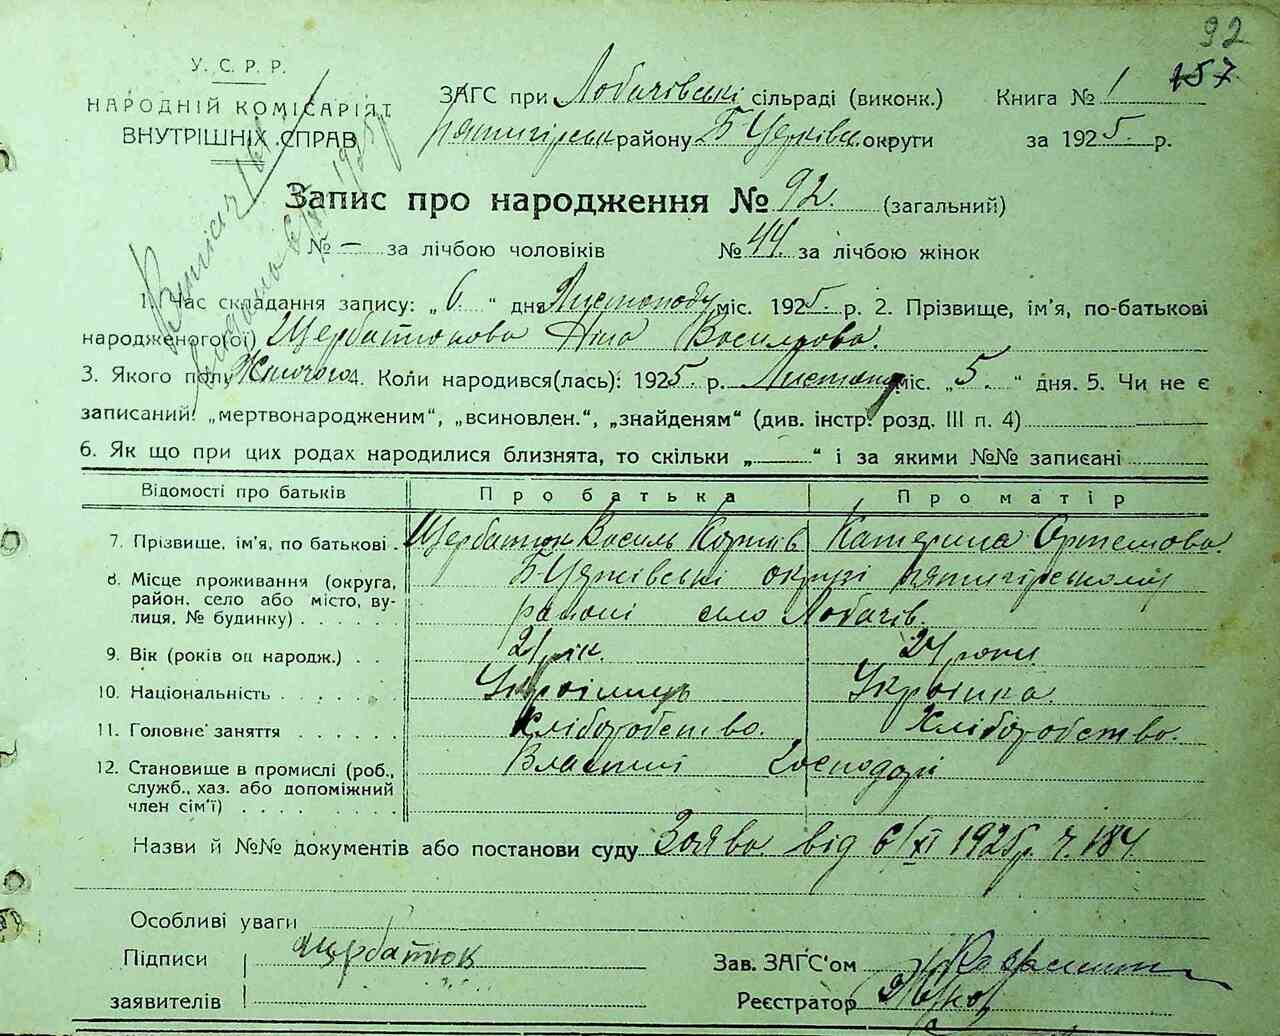 92
157
У. С. Р. Р.
НАРОДНІЙ КОМІСАРІЯТ
ВНУТРІШНІХ СПРАВ
ЗАГС при Лобачівські сільраді (виконк.) Книга № 1
пятигірськ району Б-Церківськ округи за 1925. р.
Запис про народження № 92. (загальний)
№ – за лічбою чоловіків № 44. за лічбою жінок
1. Час складання запису: „ 6. “ дня Листопаду міс. 1925. р. 2. Прізвище, ім'я, по-батькові
народженого(ої) Щербатюкова Ніна Василіова.
3. Якого полу Жіночого 4. Коли народився(лась): 1925. р. Листопад міс. „ 5. “ дня. 5. Чи не є
записаний: „мертвонародженим“, „всиновлен.“, „знайденям“ (див. інстр. розд. III п. 4)
6. Як що при цих родах народилися близнята, то скільки „ “ і за якими №№ записані
Відомості про батьків Про батька Про матір
7. Прізвище, ім'я, по батькові Щербатюк Василь Катерина Ортемова.
8. Місце проживання (округа, Б-Церківські окрузі пятигірському
район, село або місто, вулиця, № будинку) районі село Лобачів.
9. Вік (років од народж.) 21 рік. 24 роки.
10. Національність Українць Українка.
11. Головне заняття Хліборобство. Хліборобство.
12. Становище в промислі (роб., Власниі Господарі
служб., хаз. або допоміжний
член сім'ї)
Назви й №№ документів або постанови суду Заява від 6/XI 1925р. ч. 184.
Особливі уваги
Підписи Щербатюк Зав. ЗАГС'ом
заявителів Реєстратор